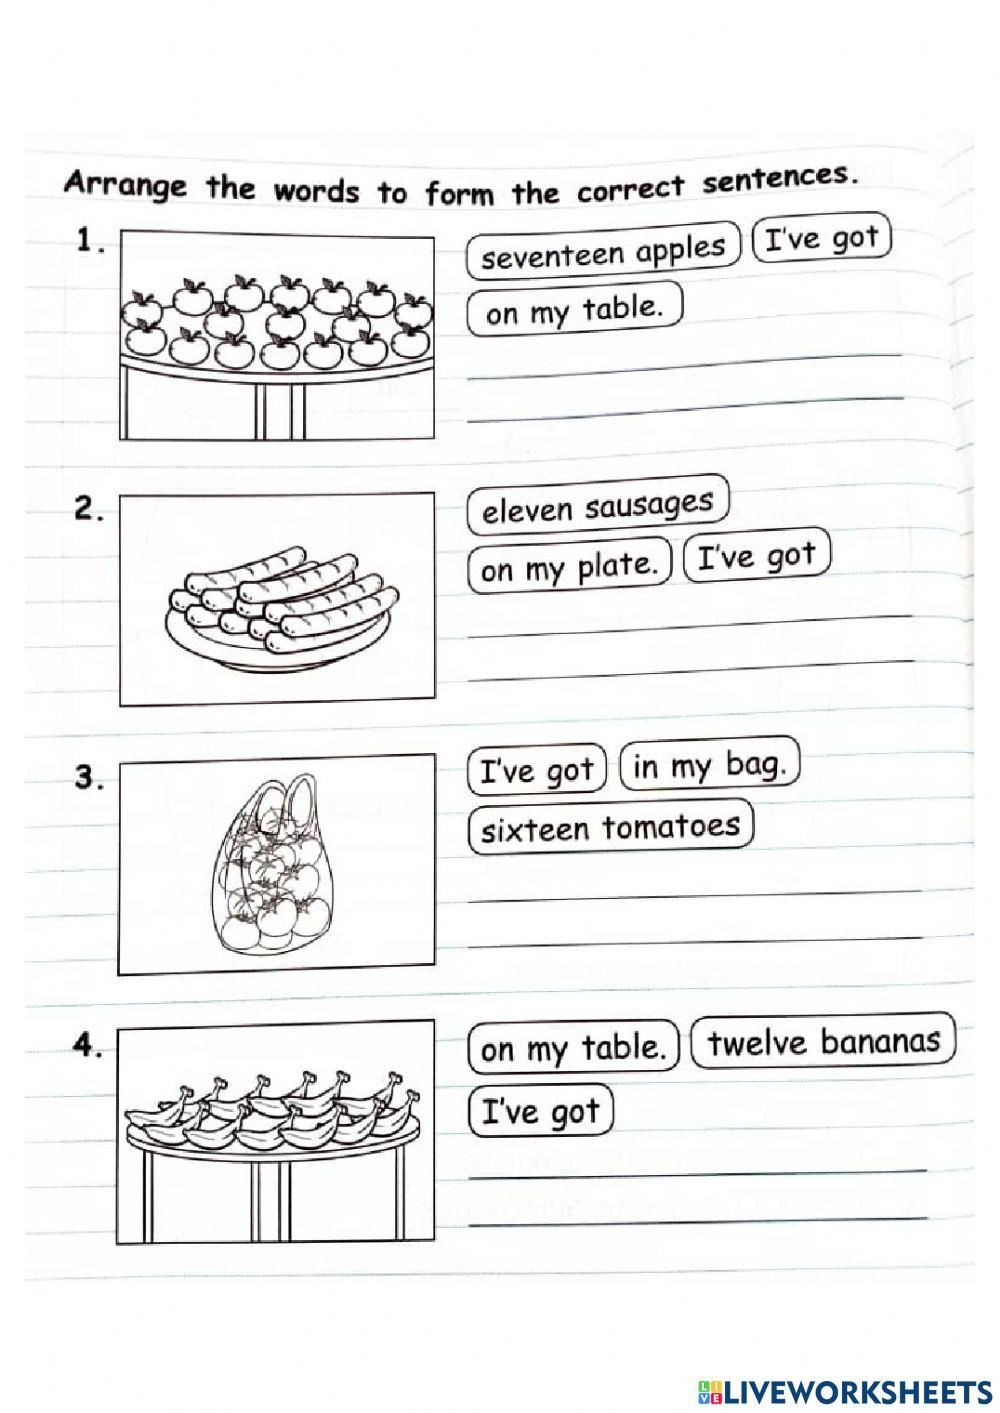 Arrange the words to form the correct sentences.
1.
seventeen apples I've got
on my table.
2.
eleven sausages
on my plate. I've got
3.
I've got in my bag.
sixteen tomatoes
4.
on my table. twelve bananas
I've got
LIVE LIVEWORKSHEETS